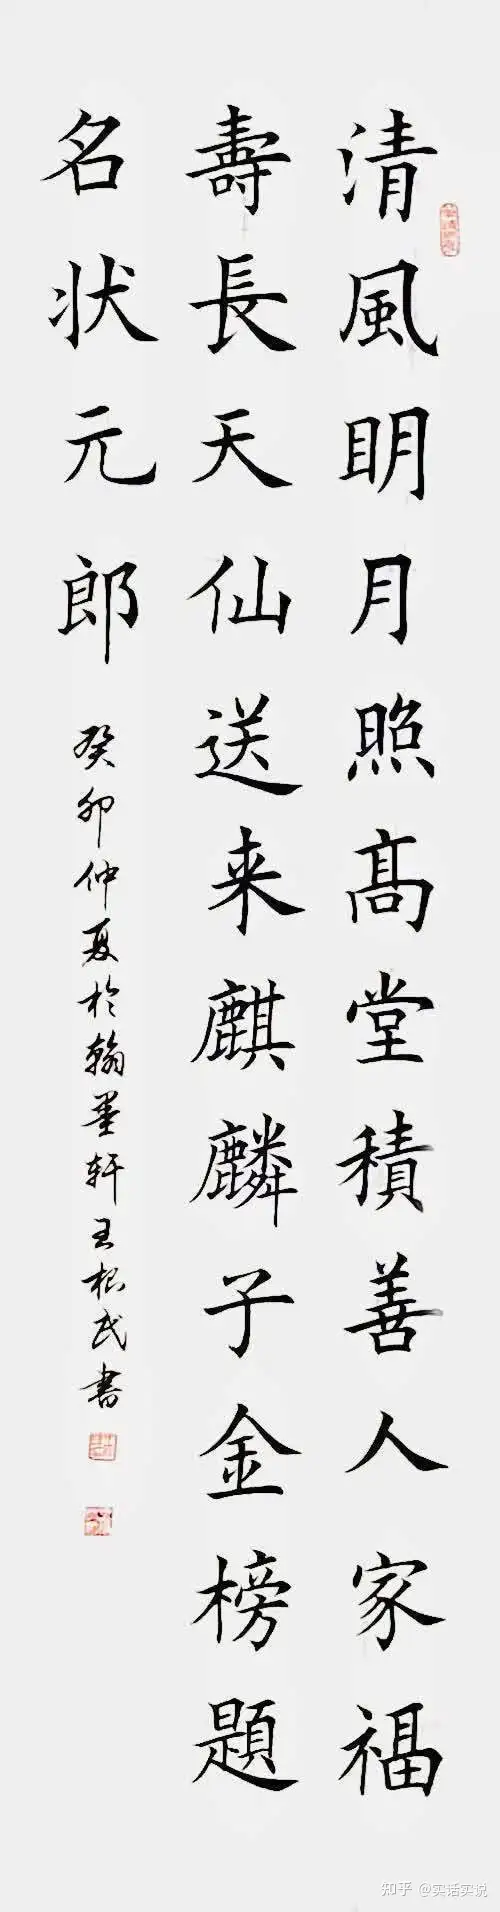 清風明月照高堂積善人家福
壽長天仙送来麒麟子金榜題
名状元郎
癸卯仲夏於翰墨轩王根民書
知乎 @实话实说